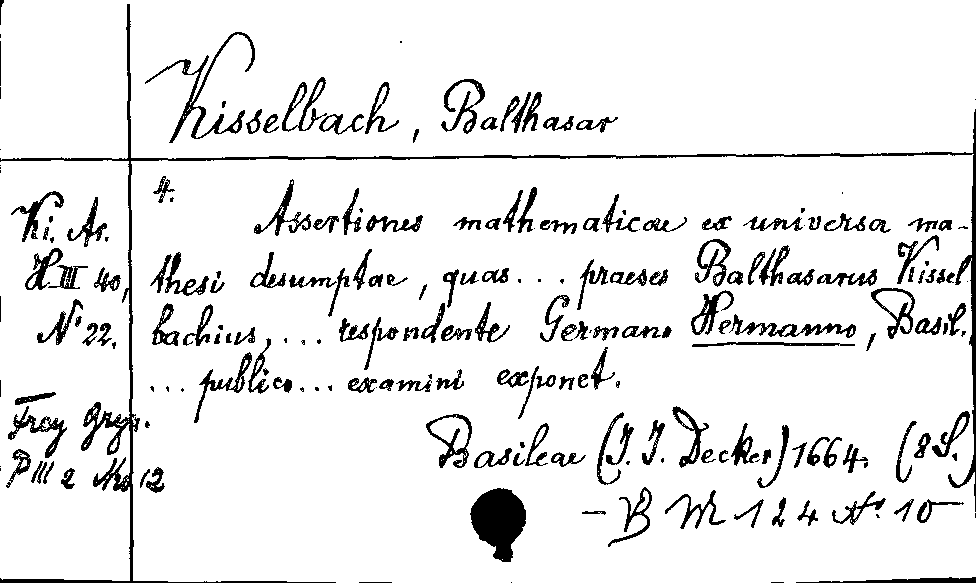 Kisselbach, Balthasar
4.
Assertiones mathematicae ex universa ma-
thesi desumptae, quas... praeses Balthasarus Kissel
bachius,... respondente Germano Hermanno, Basil.,
... publico... examini exponet.
Basileae (J. J. Decker) 1664. (8 S.)
– B M 124 No 10
Ki. Ar.
H III 40,
No 22.
Frey Gryn.
P III 2 No 12